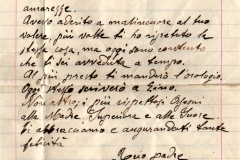 amaresse.
Avevo aderito a malincuore al tuo
volere, più volte ti ho ripetuto la
stessa cosa, ma oggi sono contento
che ti sei avveduta a tempo.
Al più presto ti manderò l'orologio.
Oggi stesso scriverò a Zino.
Non altro; i più rispettosi ossequi
alla Madre Superiora e alle Suore.
Ti abbracciamo e augurandoti tanta
felicità
Tuo padre